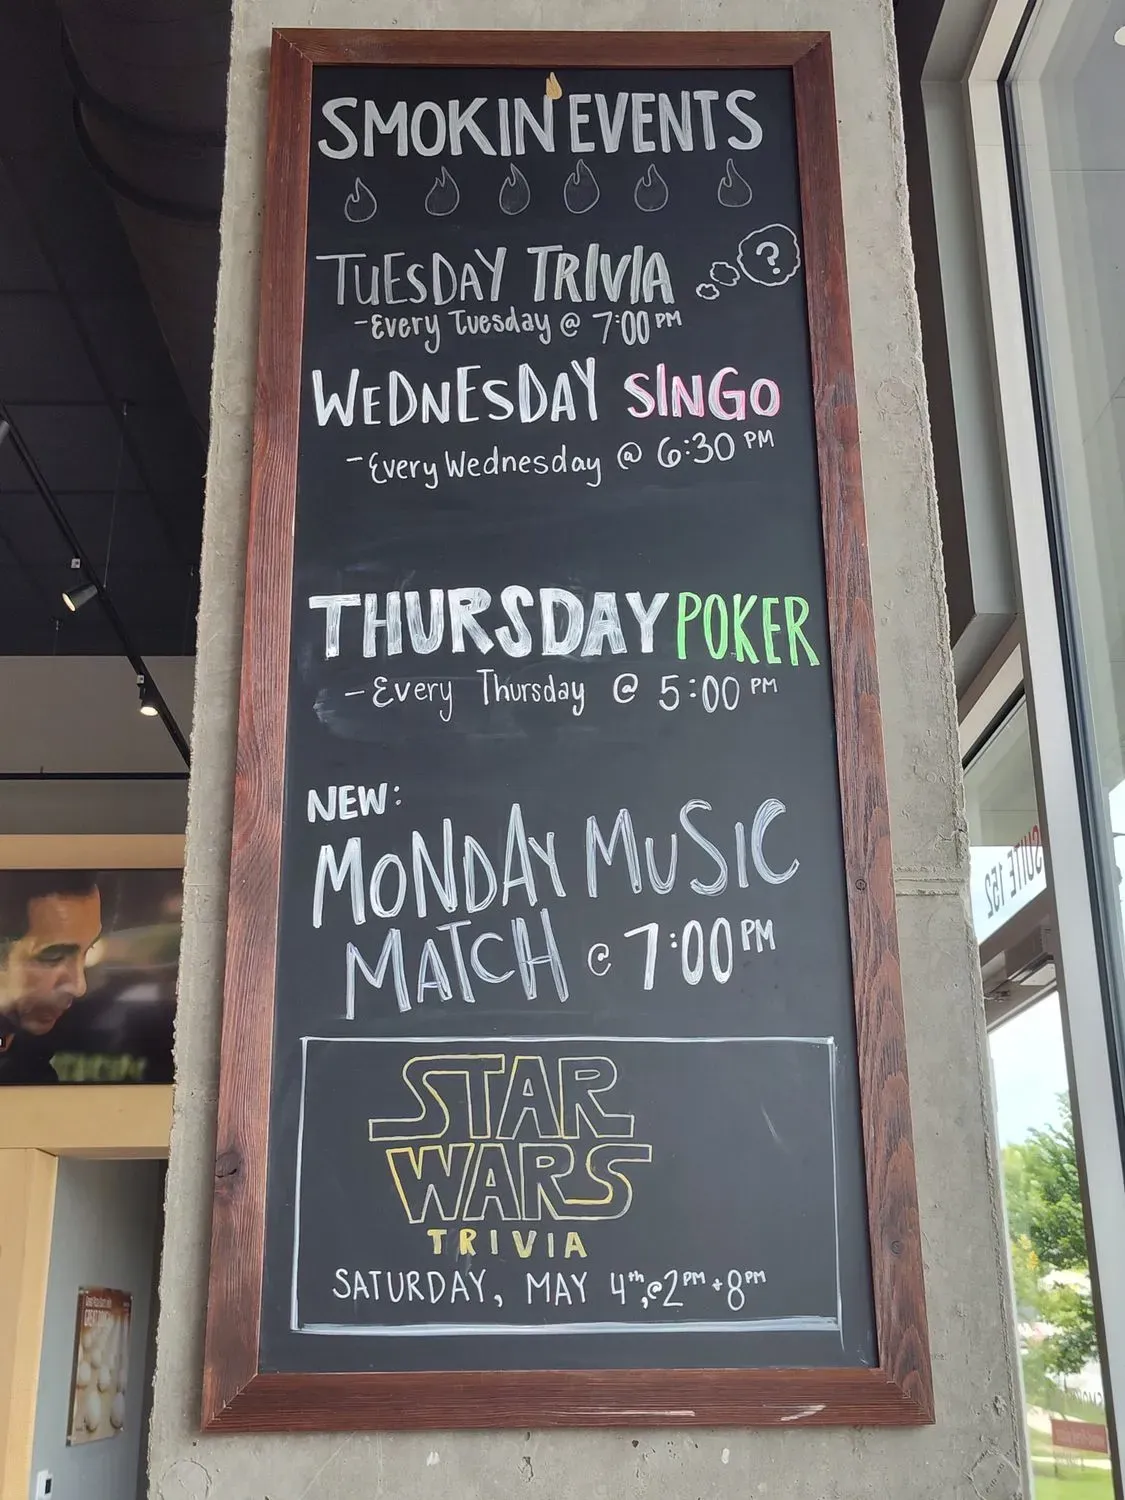 SMOKIN' EVENTS
TUESDAY TRIVIA ?
-Every Tuesday @ 7:00 PM
WEDNESDAY SINGO
-Every Wednesday @ 6:30 PM
THURSDAY POKER
-Every Thursday @ 5:00 PM
NEW:
MONDAY MUSIC
MATCH @ 7:00 PM
STAR
WARS
TRIVIA
SATURDAY, MAY 4th, @ 2PM + 8PM
SUITE 152